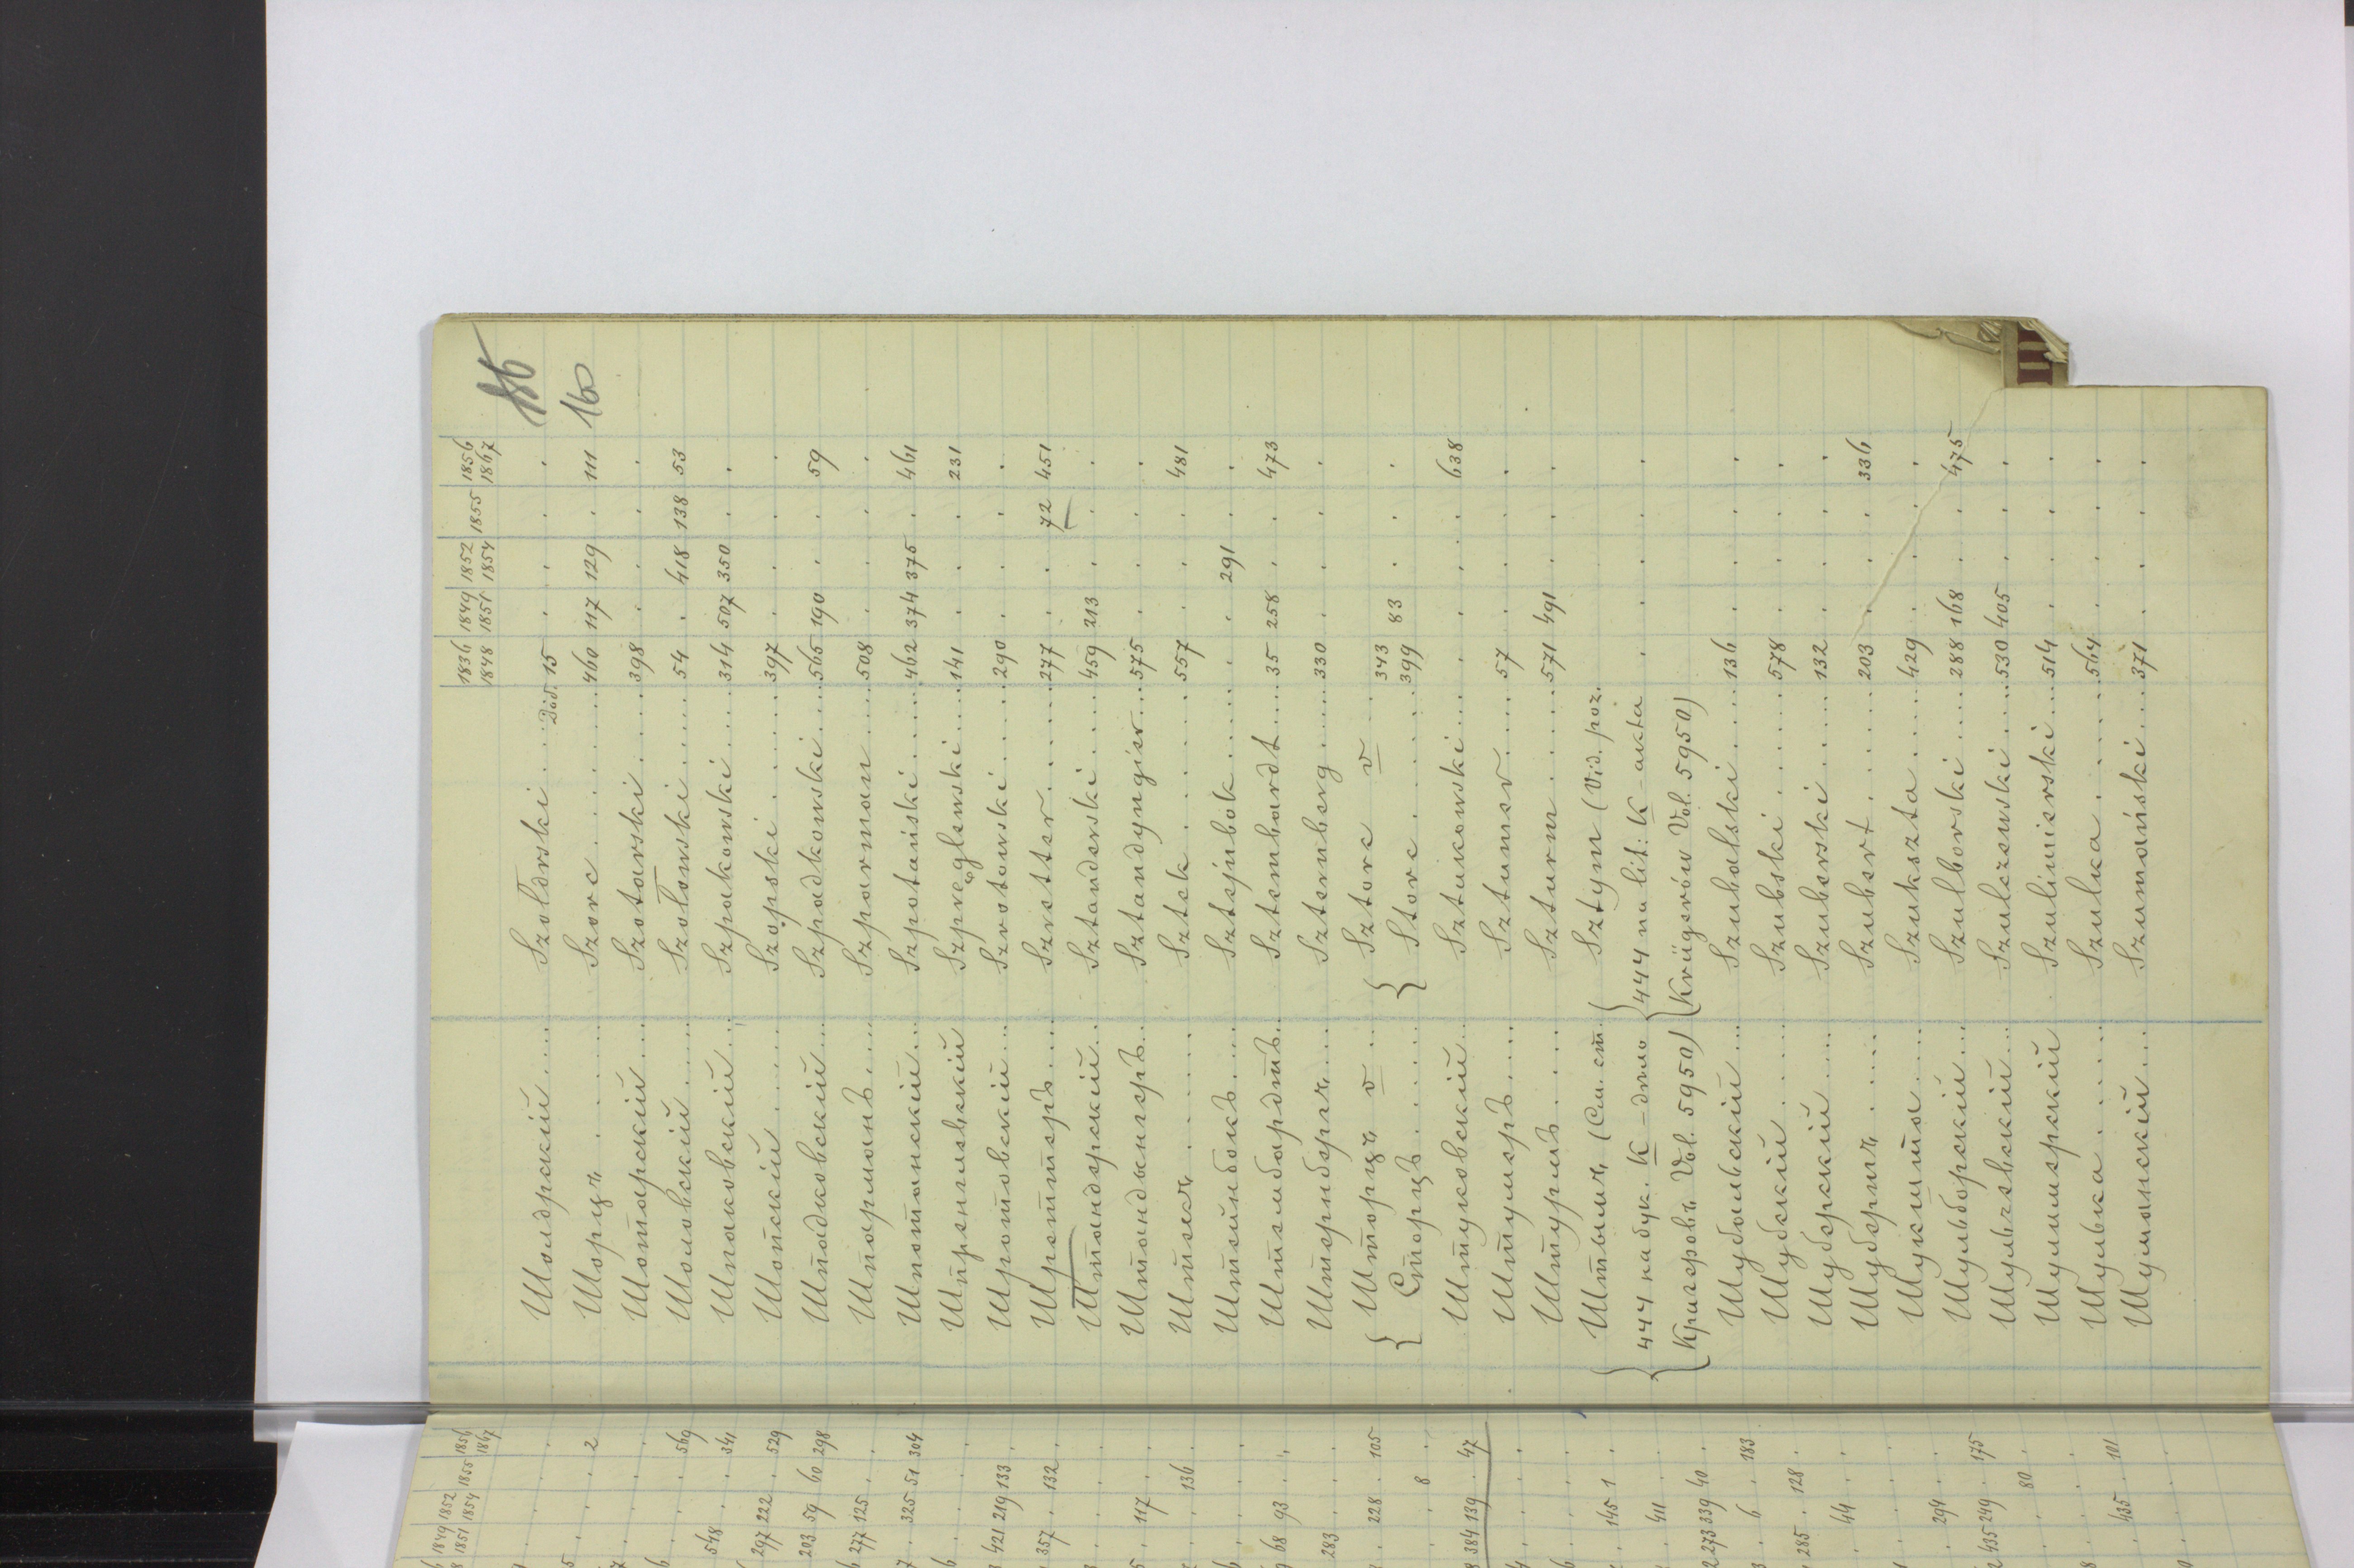 1836 1849 1852 1855 1856
1848 1851 1854 1867
16
160
Шолдрскій..... Szołdrski.... Dod. 15 . . . .
Шорцъ ..... Szorc....... 460 117 129 . 111
Шотарскій.... Szotarski..... 398 . . . .
Шоловскій.... Szołowski..... 54 . 418 138 53
Шпаковскій... Szpakowski.... 314 507 350 . .
Шопскій..... Szopski ..... 397 . . . .
Шпадковскій... Szpadkowski.... 565 190 . . 59
Шпарманъ.... Szparman.... 508 . . . .
Шпотанскій... Szpotański.... 462 374 375 . 461
Шпренглевскій Szpręglewski.... 141 . . . 231
Шротовскій... Szrotowski.... 290 . . . .
Шреттеръ.... Szretter...... 277 . . 72 451
Штандерскій.. Sztanderski.... 459 213 . . .
Штандынгеръ... Sztandyngier... 575 . . . .
Штекъ...... Sztek....... 557 . . . 481
Штейнбокъ.... Sztejnbok..... . . 291 . .
Штембардтъ... Sztembardt.... 35 258 . . 473
Штернбергъ.... Szternberg.... 330 . . . .
Шторцъ v... Sztorc v... 343
Сторцъ..... Storc...... 399 83 . . .
Штуковскій.. Sztukowski... . . . . 638
Штумеръ.... Sztumer..... 57 . . . .
Штурмъ.... Szturm...... 571 491 . . .
Штымъ (См. ст. Sztym (Vid. poz.
444 на бук. К - дѣло 444 na lit: K - akta . . . . .
Кригеровъ Vol. 5950) Krügerów Vol. 5950)
Шубальскій... Szubalski.... 136 . . . .
Шубскій.... Szubski...... 578 . . . .
Шуберскій.... Szuberski..... 132 . . . .
Шубертъ..... Szubert...... 203 . . . 336
Шукшта..... Szukszta..... 429 . . . .
Шульборскій... Szulborski.... 288 168 . . 475
Шульчевскій.. Szulczewski... 530 405 . . .
Шулимерскій Szulimierski... 514 . . . .
Шулька...... Szulka...... 564 . . . .
Шуманскій.... Szumański.... 371 . . . .
1849 1852 1855 1856
1851 1854 1867
. . . 2
569
548 . . 341
297 222 . 529
203 59 60 298
277 125 . .
. 325 51 304
421 219 133 .
357 . 132 .
. 117 . .
. . 136 .
68 93 . .
283 . . .
. 228 . 105
. . 8 .
384 139 . 47
. 145 1 .
. 411 . .
273 339 40 .
. 6 . 183
285 . 128 .
. 44 . .
. 294 . .
435 249 . 175
. . 80 .
. 435 . 101